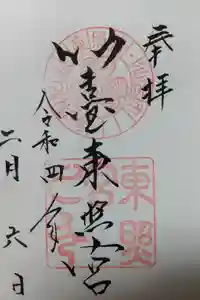 奉拝
仙臺東照宮
令和四年
二月六日
東照宮之印